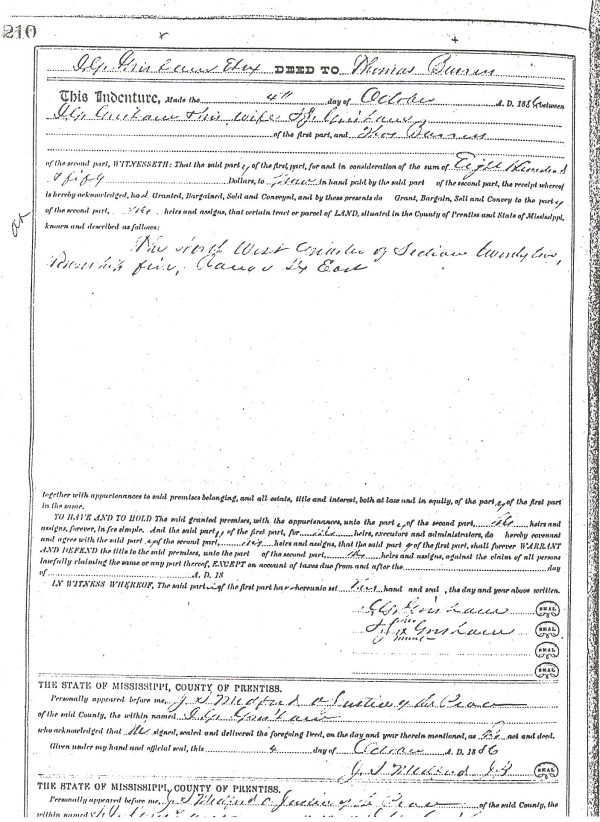 210
DEED TO Thomas
This Indenture, Made the 4th day of October A. D. 1886 between
wife
of the first part, and Thos
of the second part, WITNESSETH: That the said part y of the first part, for and in consideration of the sum of Eight Hundred
& fifty Dollars, to in hand paid by the said part of the second part, the receipt whereof
is hereby acknowledged, ha Granted, Bargained, Sold and Conveyed, and by these presents do Grant, Bargain, Sell and Convey to the part y
of the second part, his heirs and assigns, that certain tract or parcel of LAND, situated in the County of Prentiss and State of Mississippi,
known and described as follows:
The North West Quarter of Section
Township five, Range Six East
together with appurtenances to said premises belonging, and all estate, title and interest, both at law and in equity, of the part of the first part
in the same.
TO HAVE AND TO HOLD The said granted premises, with the appurtenances, unto the part y of the second part, heirs and
assigns, forever, in fee simple. And the said part of the first part, for heirs, executors and administrators, do hereby covenant
and agree with the said part of the second part, his heirs and assigns, that the said part of the first part, shall forever WARRANT
AND DEFEND the title to the said premises, unto the part of the second part, heirs and assigns, against the claim of all persons
lawfully claiming the same or any part thereof, EXCEPT on account of taxes due from and after the day
of A. D. 18
IN WITNESS WHEREOF, The said part of the first part ha hereunto set hand and seal, the day and year above written.
SEAL
her
x SEAL
mark
SEAL
SEAL
THE STATE OF MISSISSIPPI, COUNTY OF PRENTISS.
Personally appeared before me, J. S. Medford a Justice of the Peace
of the said County, the within named
who acknowledged that he signed, sealed and delivered the foregoing deed, on the day and year therein mentioned, as act and deed.
Given under my hand and official seal, this 4 day of October A. D. 1886
J. S. Medford J. P. SEAL
THE STATE OF MISSISSIPPI, COUNTY OF PRENTISS.
Personally appeared before me, J. S. Medford a Justice of the Peace of the said County, the
within named